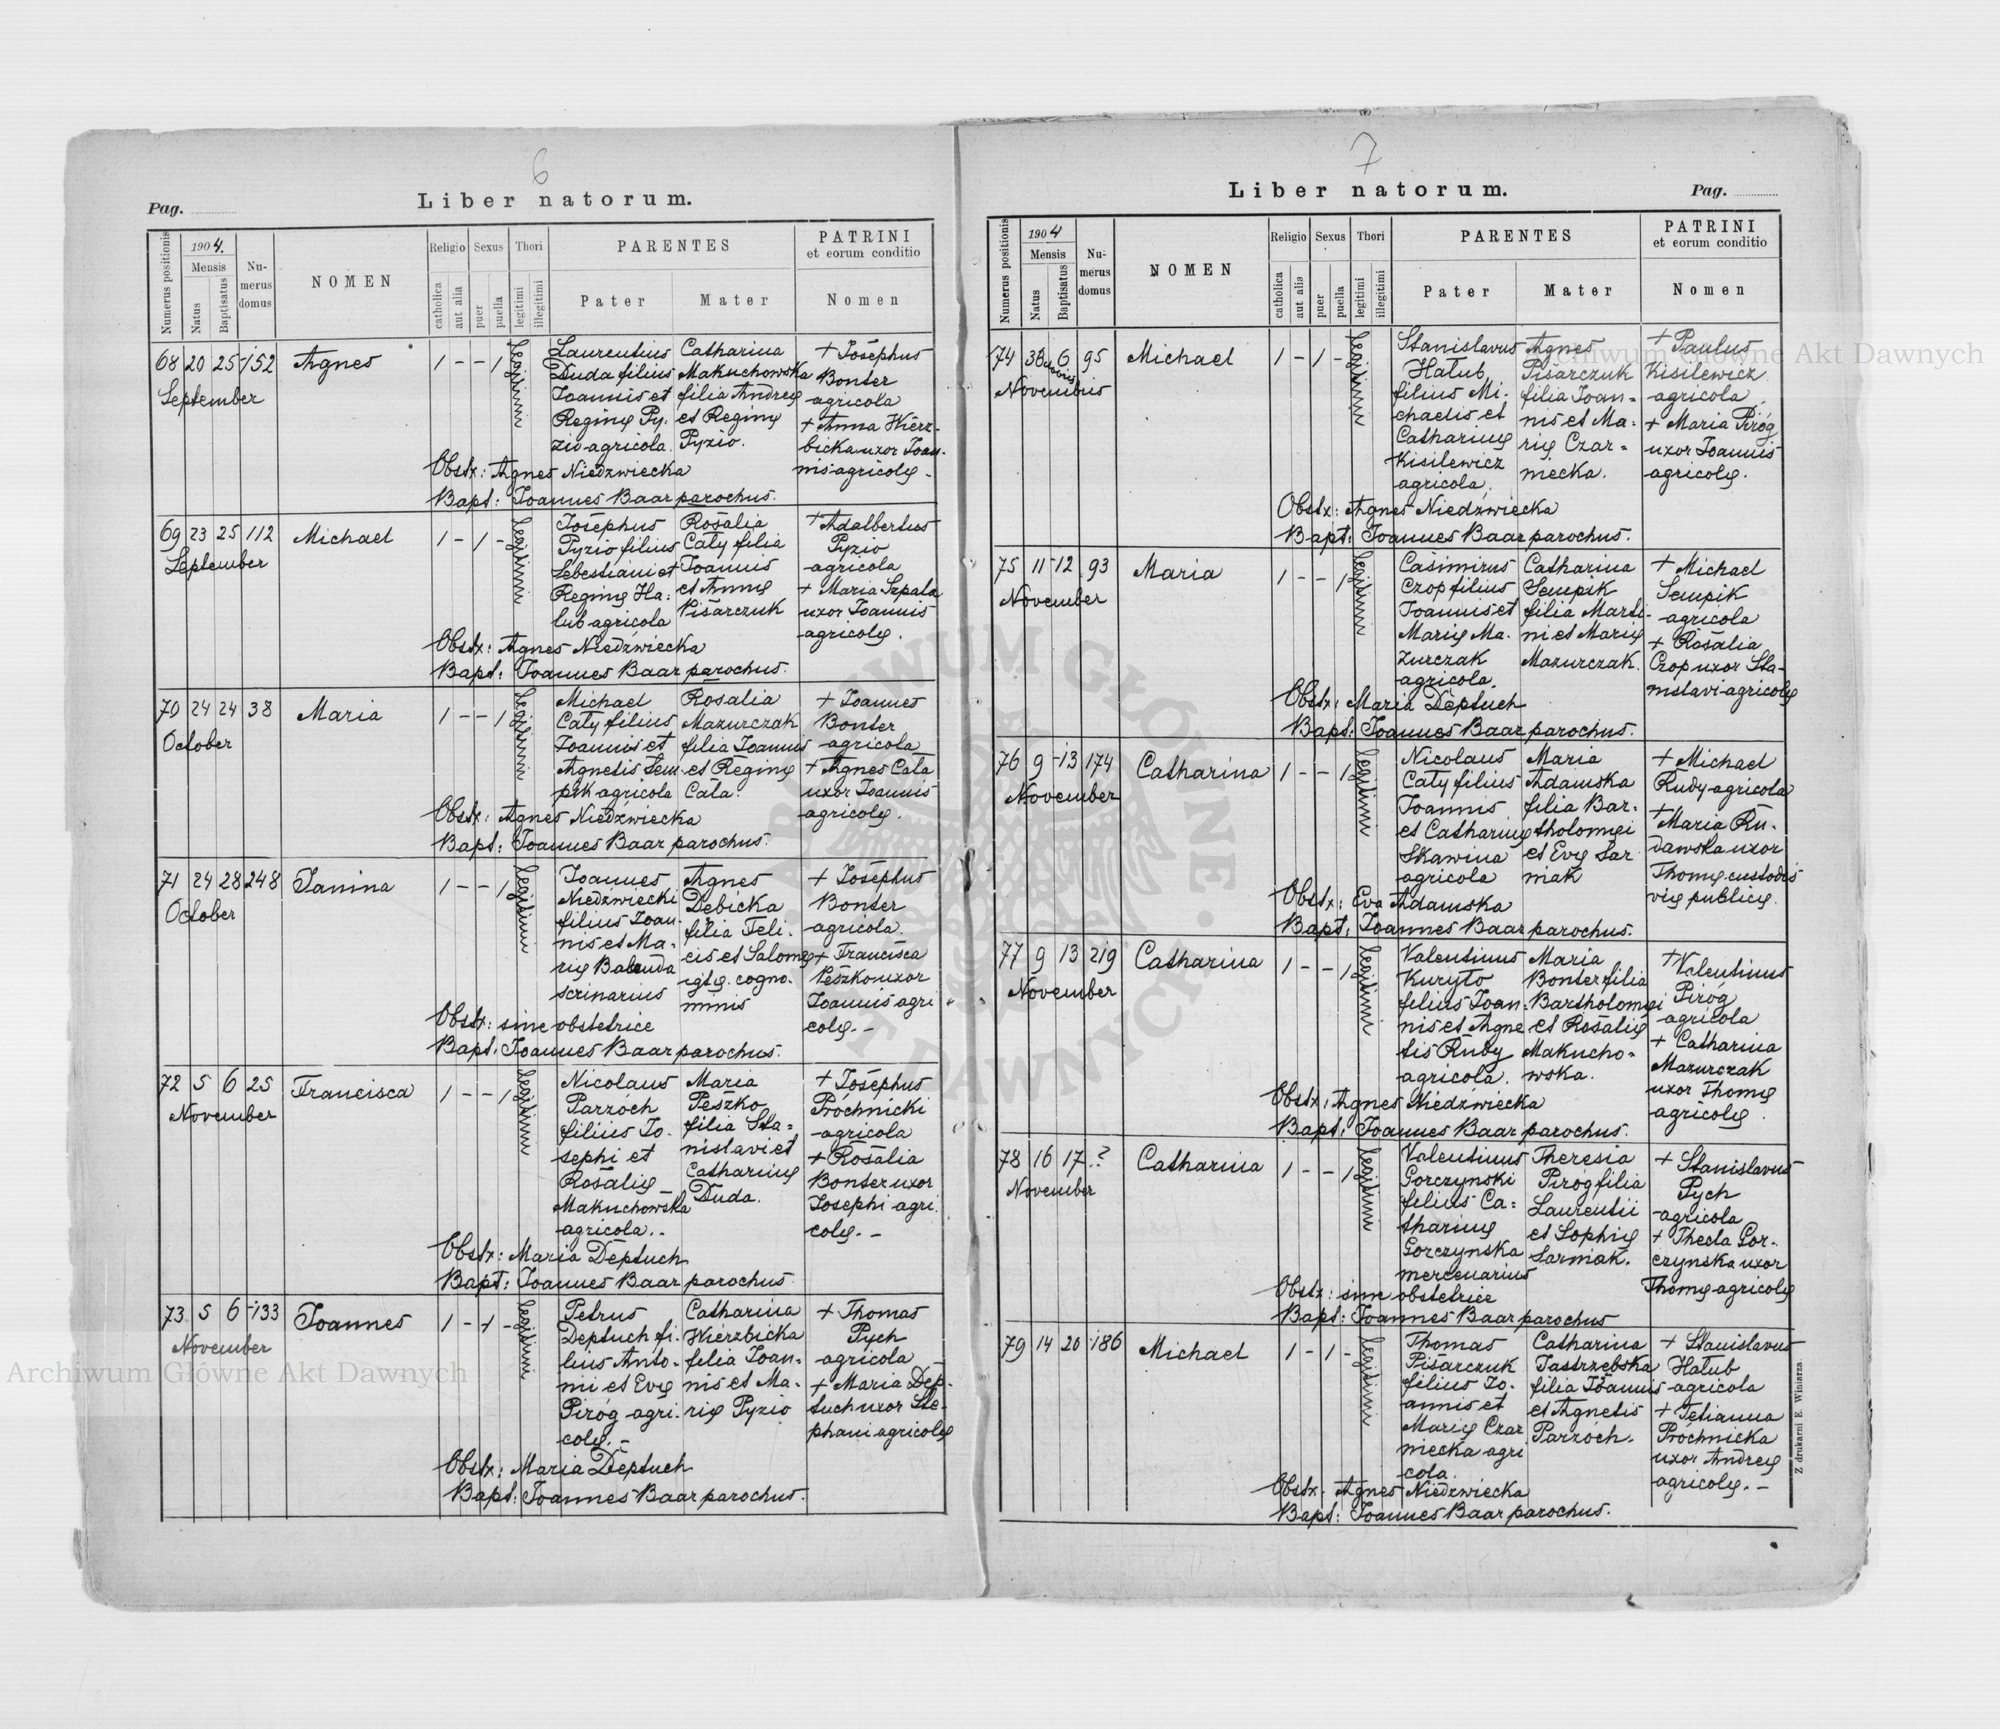 6
Pag.
Liber natorum.
Numerus positionis
1904.
Mensis
Natus
Baptisatus
Nu-
merus
domus
NOMEN
Religio
catholica
aut alia
Sexus
puer
puella
Thori
legitimi
illegitimi
PARENTES
Pater
Mater
PATRINI
et eorum conditio
Nomen
68 20 25 152 Agnes 1 - - 1 legitimi
September
Laurentius
Duda filius
Joannis et
Reginę Py-
zio agricola.
Catharina
Makuchowska
filia Andreę
et Reginę
Pyzio.
+ Josephus
Bonter
agricola
+ Anna Wierz-
bicka uxor Joan-
nis agricolę -
Obstx: Agnes Niedźwiecka
Bapt: Joannes Baar parochus.
69 23 25 112 Michael 1 - 1 - legitimi
September
Josephus
Pyzio filius
Sebestiani et
Reginę Ha-
lub agricola
Rosalia
Cały filia
Joannis
et Annę
Pisarczuk
+ Adalbertus
Pyzio
agricola
+ Maria Szpala
uxor Joannis
agricolę.
Obstx: Agnes Niedźwiecka
Bapt: Joannes Baar parochus.
70 24 24 38 Maria 1 - - 1 legitimi
October
Michael
Cały filius
Joannis et
Agnetis Sem-
pik agricola
Rosalia
Mazurczak
filia Joannis
et Reginę
Cała.
+ Joannes
Bonter
agricola
+ Agnes Cała
uxor Joannis
agricolę.
Obstx: Agnes Niedźwiecka
Bapt: Joannes Baar parochus.
71 24 28 248 Janina 1 - - 1 legitimi
October
Joannes
Niedźwiecki
filius Joan-
nis et Ma-
rię Balenda
scrinarius
Agnes
Debicka
filia Feli-
cis et Salomę
igtę. cogno-
minis
+ Josephus
Bonter
agricola.
+ Francisca
Peszko uxor
Joannis agri
colę. -
Obstx: sine obstetrice
Bapt: Joannes Baar parochus.
72 5 6 25 Francisca 1 - - 1 legitimi
November
Nicolaus
Parzóch
filius Jo-
sephi et
Rosalię
Makuchowska
agricola..
Maria
Peszko
filia Sta-
nislavi et
Catharinę
Duda.
+ Josephus
Próchnicki
agricola
+ Rosalia
Bonter uxor
Josephi agri.
colę. -
Obstx: Maria Deptuch
Bapt: Joannes Baar parochus.
73 5 6 133 Joannes 1 - 1 - legitimi
November
Petrus
Deptuch fi-
lius Anto-
nii et Evę
Piróg agri-
colę. -
Catharina
Wierzbicka
filia Joan-
nis et Ma-
rię Pyzio
+ Thomas
Pych
agricola
+ Maria Dep-
tuch uxor Ste-
phani agricolę
Obstx: Maria Deptuch
Bapt: Joannes Baar parochus.
7
Liber natorum.
Pag.
Numerus positionis
1904
Mensis
Natus
Baptisatus
Nu-
merus
domus
NOMEN
Religio
catholica
aut alia
Sexus
puer
puella
Thori
legitimi
illegitimi
PARENTES
Pater
Mater
PATRINI
et eorum conditio
Nomen
74 6 95 Michael 1 - 1 - legitimi
Novembris
Stanislavus
Hałub
filius Mi-
chaelis et
Catharinę
Kisilewicz
agricola.
Agnes
Pisarczuk
filia Joan-
nis et Ma-
rię Czar-
niecka.
+ Paulus
Kisilewicz
agricola.
+ Maria Piróg
uxor Joannis
agricolę.
Obstx: Agnes Niedźwiecka
Bapt: Joannes Baar parochus.
75 11 12 93 Maria 1 - - 1 legitimi
November
Casimirus
Czop filius
Joannis et
Marię Ma-
zurczak
agricola.
Catharina
Sempik
filia Marti-
ni et Marię
Mazurczak.
+ Michael
Sempik
agricola
+ Rosalia
Czop uxor Sta-
nislavi agricolę
Obstx: Maria Deptuch
Bapt: Joannes Baar parochus.
76 9 13 174 Catharina 1 - - 1 legitimi
November
Nicolaus
Cały filius
Joannis
et Catharinę
Skawina
agricola
Maria
Adamska
filia Bar-
tholomęi
et Evę Sar
niak
+ Michael
Rudy agricola
+ Maria Ru-
dawska uxor
Thomę custodis
vię publicę.
Obstx: Eva Adamska
Bapt: Joannes Baar parochus.
77 9 13 219 Catharina 1 - - 1 legitimi
November
Valentinus
Kuryło
filius Joan-
nis et Agne
tis Rudy
agricola.
Maria
Bonter filia
Bartholomęi
et Rosalię
Makucho-
wska.
+ Valentinus
Piróg
agricola
+ Catharina
Mazurczak
uxor Thomę
agricolę.
Obstx: Agnes Niedźwiecka
Bapt: Joannes Baar parochus.
78 16 17 ? Catharina 1 - - 1 legitimi
November
Valentinus
Gorczynski
filius Ca-
tharinę
Gorczynska
mercenarius
Theresia
Piróg filia
Laurentii
et Sophię
Sarniak.
+ Stanislavus
Pych
agricola
+ Thecla Gor-
czynska uxor
Thomę agricolę
Obstx: sine obstetrice
Bapt: Joannes Baar parochus
79 14 20 186 Michael 1 - 1 - legitimi
Thomas
Pisarczuk
filius Jo-
annis et
Marię Czar
niecka agri
cola.
Catharina
Jastrzębska
filia Joannis
et Agnetis
Parzoch.
+ Stanislavus
Hałub
agricola
+ Tetianna
Próchnicka
uxor Andreę
agricolę. -
Obstx: Agnes Niedźwiecka
Bapt: Joannes Baar parochus.
Z drukarni E. Winiarza.
Archiwum Główne Akt Dawnych
Archiwum Główne Akt Dawnych
ARCHIWUM GŁÓWNE AKT DAWNYCH